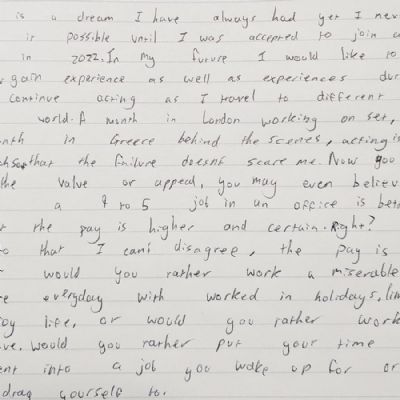 is a dream I have always had yet I nev
it possible until I was accepted to join a
in 2022. In my future I would like to
gain experience as well as experiences dur
continue acting as I travel to different
world. A month in London working on set,
nth in Greece behind the scenes, acting is
that the failure doesnt scare me. Now you
the value or appeal, you may even believ
a 9 to 5 job in an office is bet
the pay is higher and certain. Right?
o that I cant disagree, the pay is
would you rather work a miserable
re everyday with worked in holidays, lim
oy life, or would you rather work
ve. Would you rather put your time
ent into a job you wake up for or
drag yourself to.